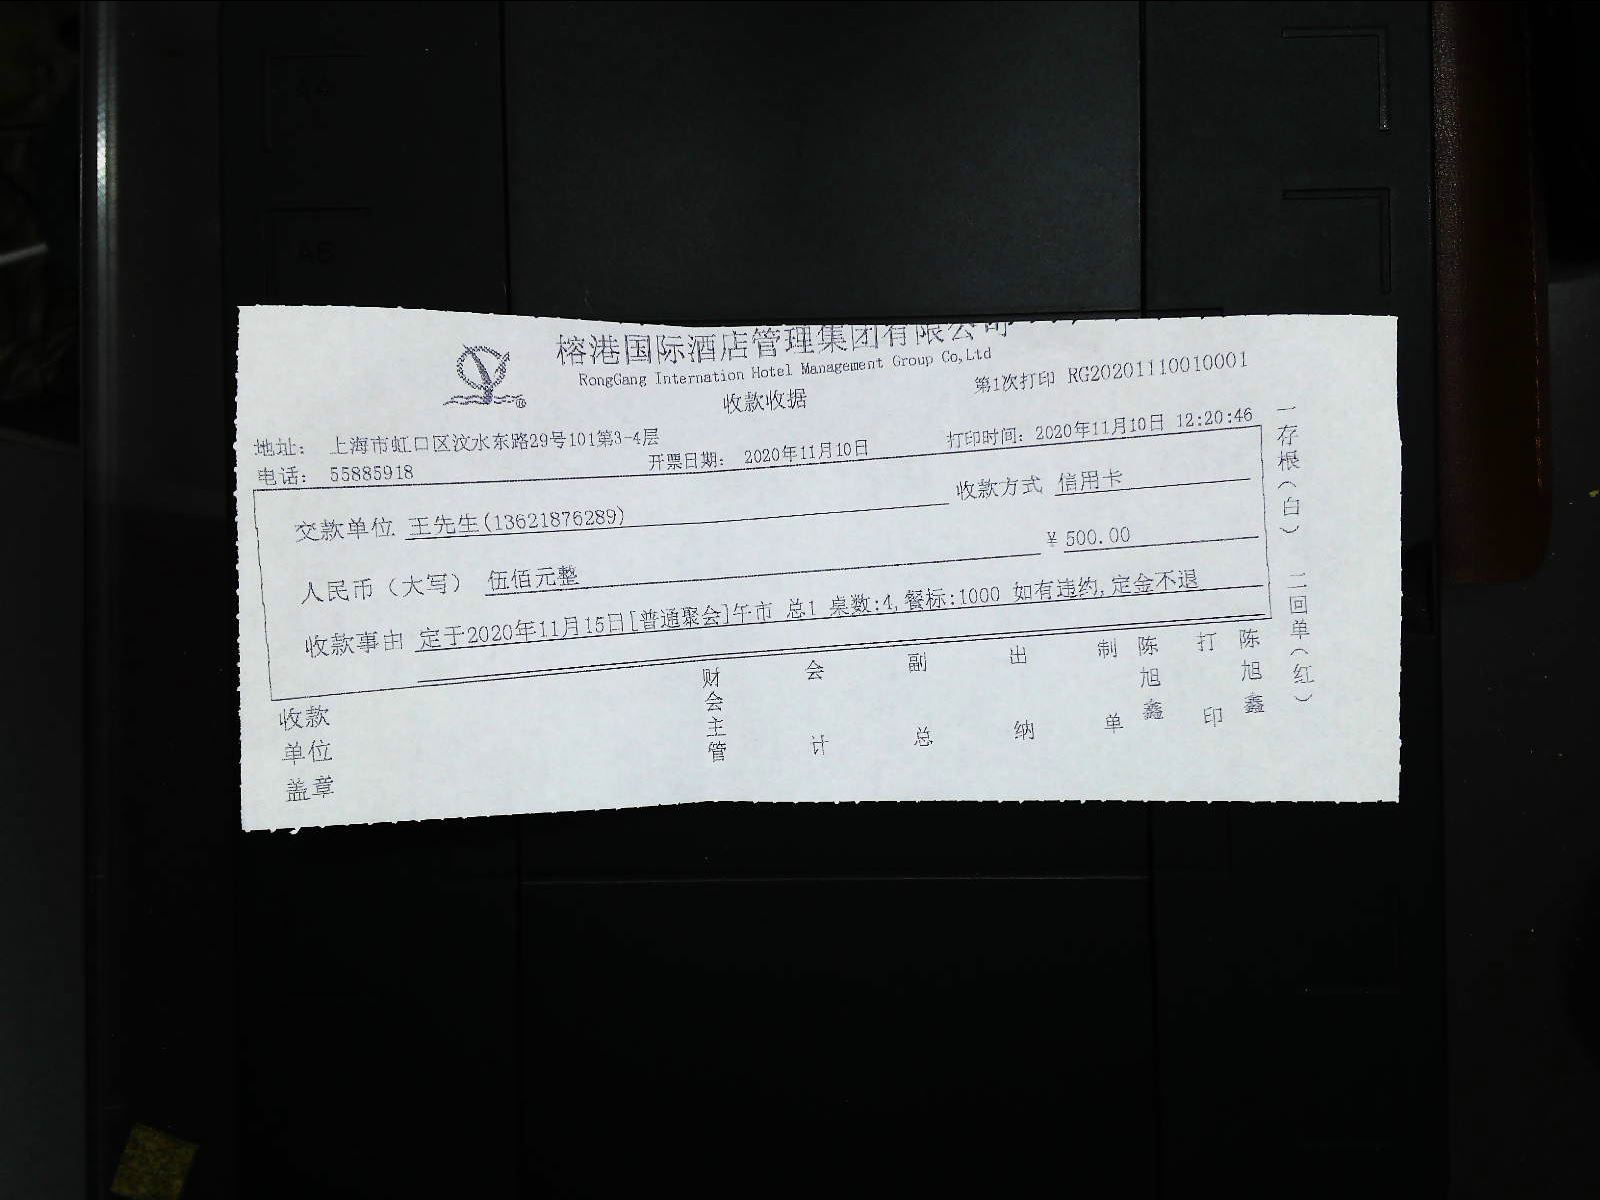 榕港国际酒店管理集团有限公司
RongGang Internation Hotel Management Group Co,Ltd
收款收据
第1次打印 RG20201110010001
地址： 上海市虹口区汶水东路29号101第3-4层
电话： 55885918
开票日期： 2020年11月10日
打印时间： 2020年11月10日 12:20:46
交款单位 王先生(13621876289)
收款方式 信用卡
人民币（大写） 伍佰元整
¥ 500.00
收款事由 定于2020年11月15日[普通聚会]午市 总1 桌数:4,餐标:1000 如有违约,定金不退
收款单位盖章
财会主管
会计
副总
出纳
制单 陈旭鑫
打印 陈旭鑫
一存根（白）
二回单（红）
A6